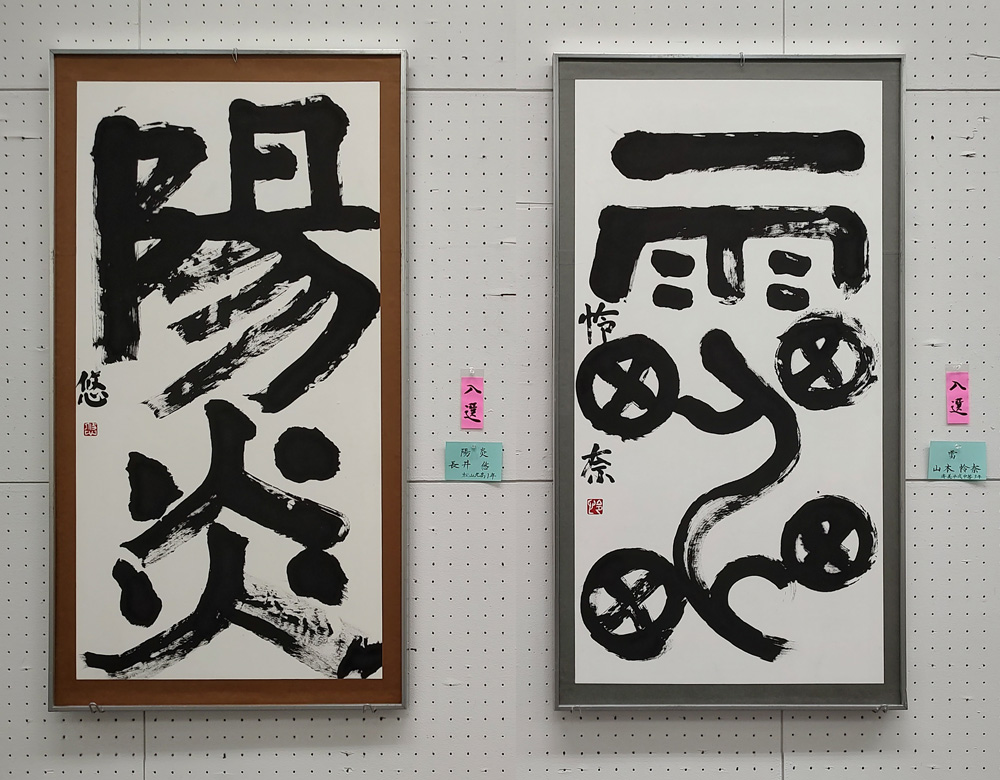 陽
炎
悠
入選
陽炎
長井 悠
雷
怜
奈
入選
雷
山本 怜奈